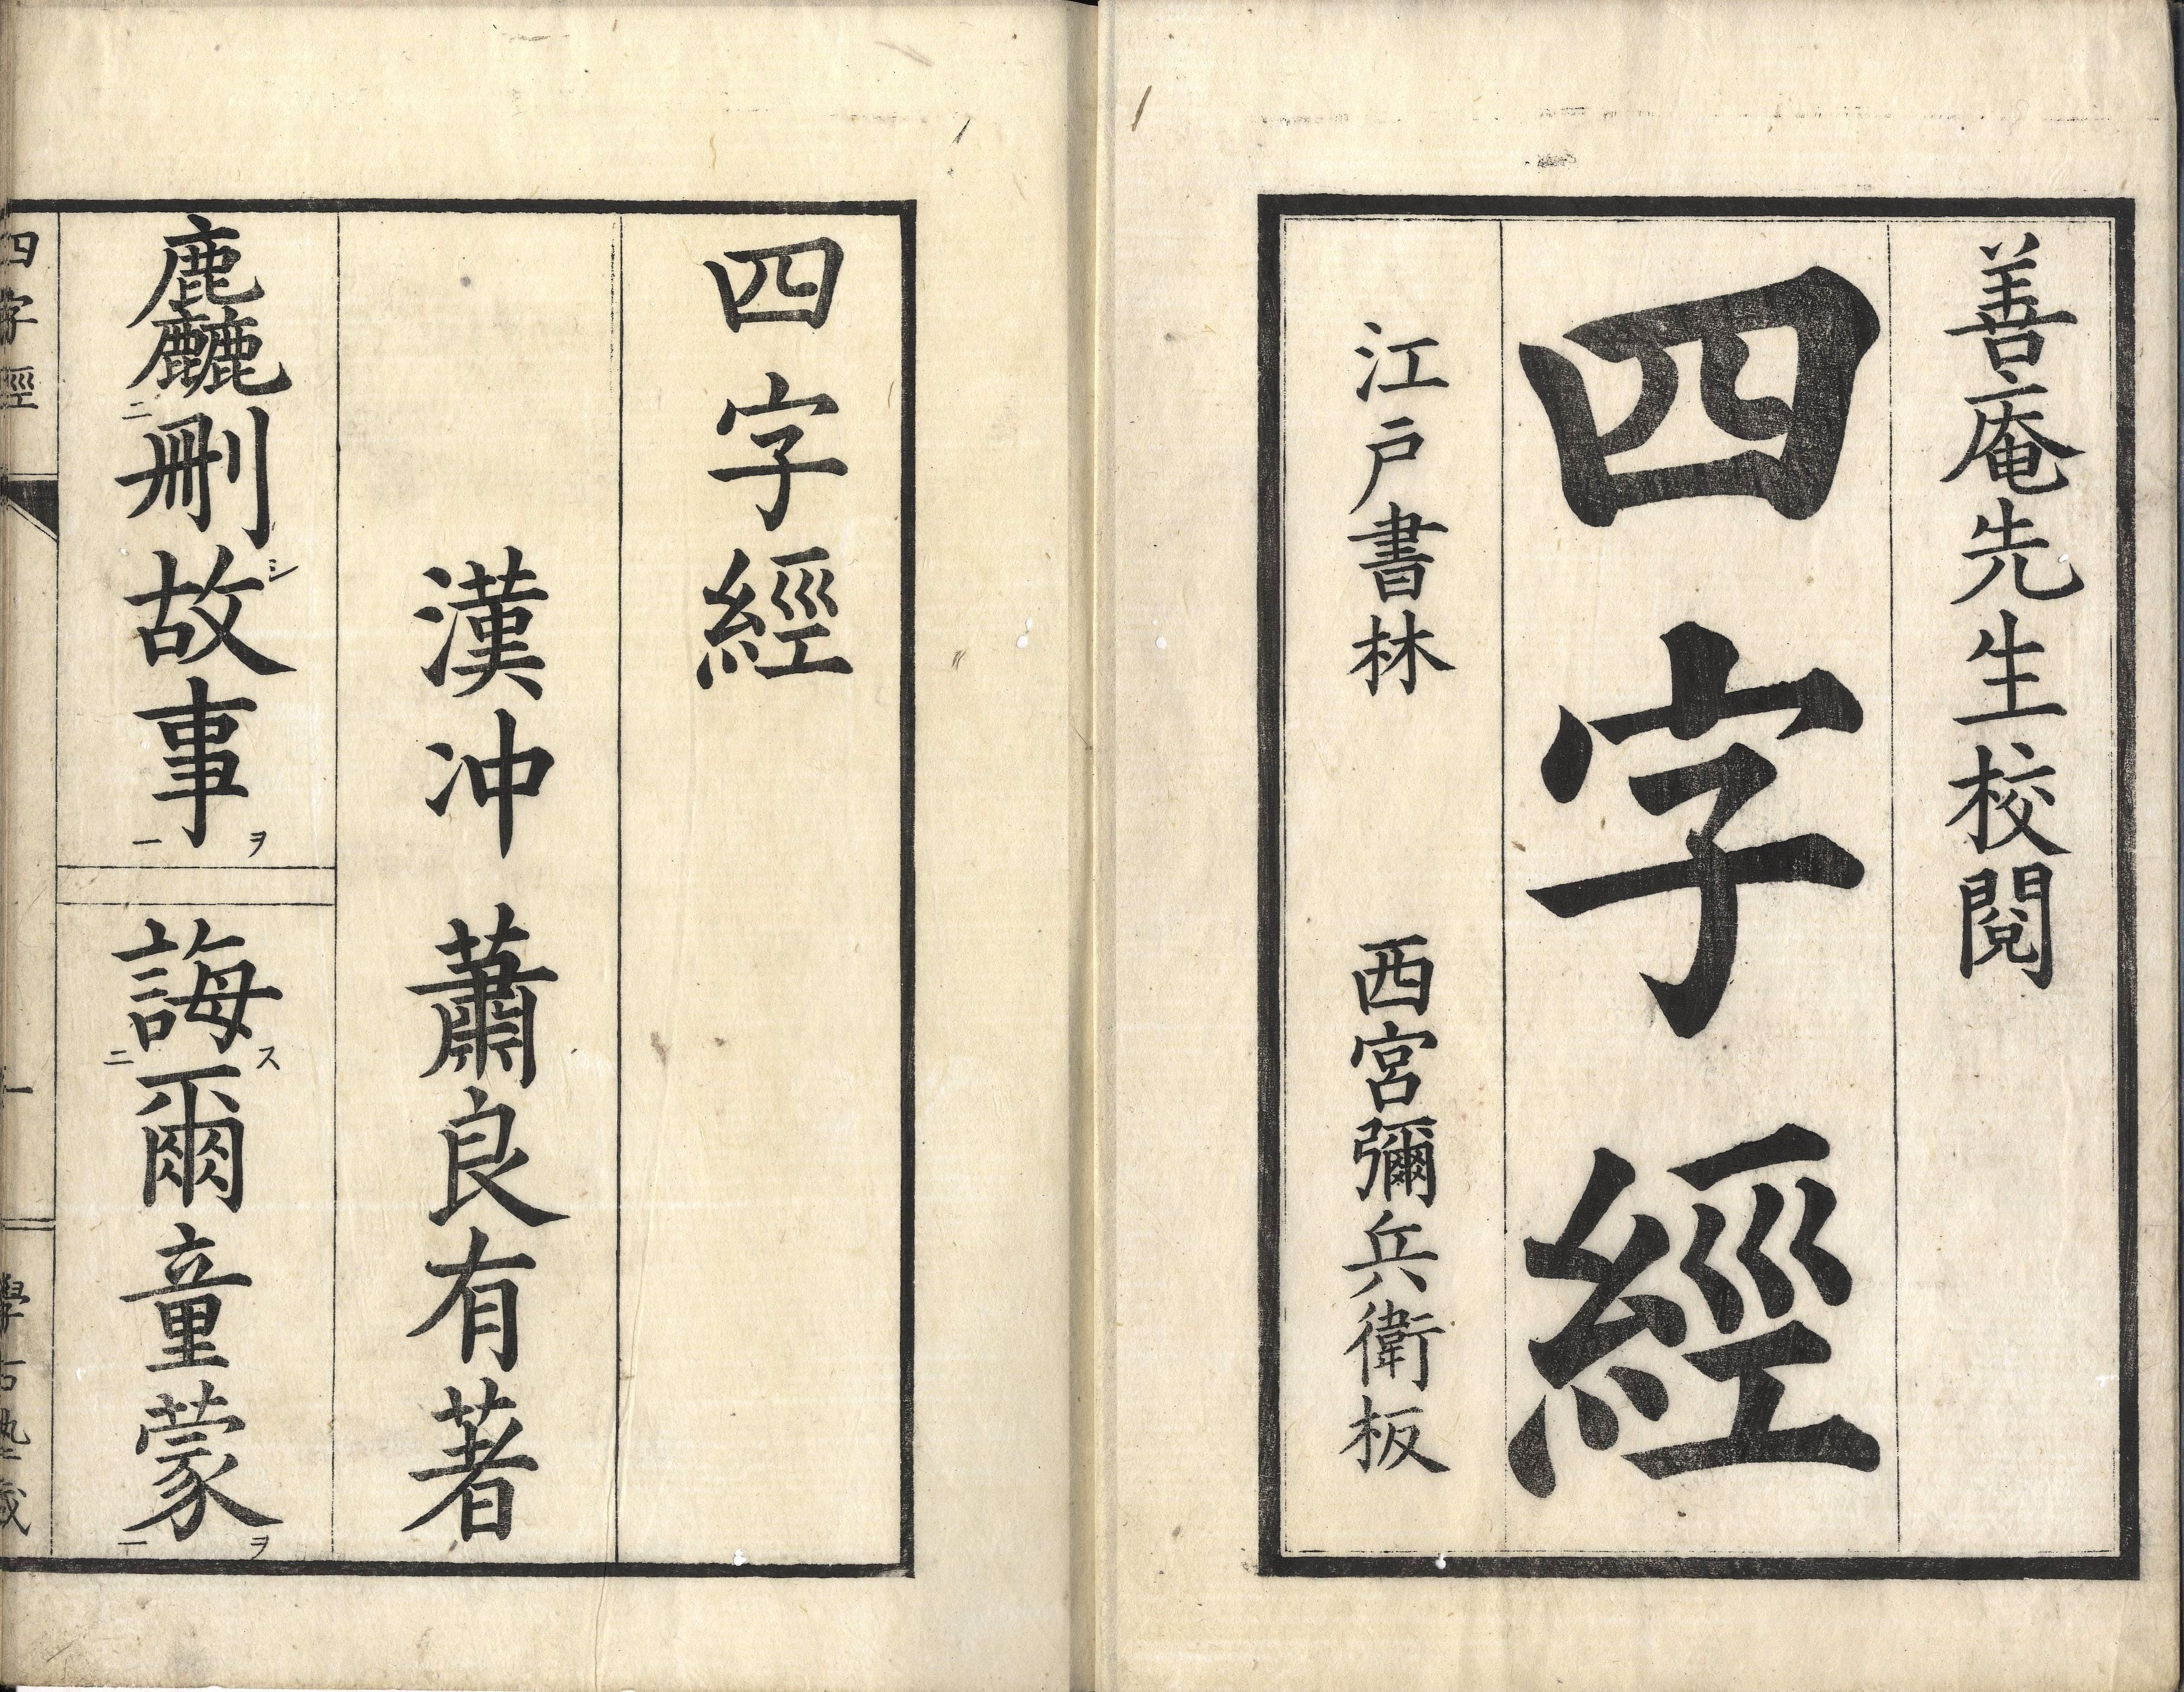 善庵先生校閲
四字經
江戸書林 西宮彌兵衛板
四字經
漢冲 蕭良有著
麤刪シ二故事ヲ一 誨ス二爾童蒙ヲ一
四字經 一 學古塾藏